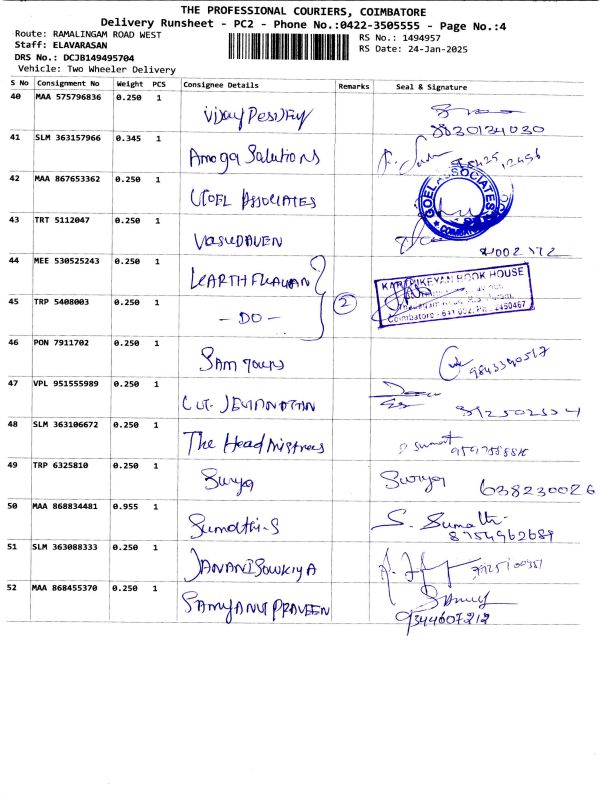 THE PROFESSIONAL COURIERS, COIMBATORE
Delivery Runsheet - PC2 - Phone No.:0422-3505555 - Page No.:4
Route: RAMALINGAM ROAD WEST
RS No.: 1494957
Staff: ELAVARASAN
RS Date: 24-Jan-2025
DRS No.: DCJB149495704
Vehicle: Two Wheeler Delivery
S No Consignment No Weight PCS Consignee Details Remarks Seal & Signature
40 MAA 575796836 0.250 1
8830134030
41 SLM 363157966 0.345 1
Amoga Solutions
42 MAA 867653362 0.250 1
GOEL ASSOCIATES
GOEL ASSOCIATES
43 TRT 5112047 0.250 1
VASUDAVEN
44 MEE 530525243 0.250 1
2
KARTHIKEYAN BOOK HOUSE
45 TRP 5408003 0.250 1
- DO -
46 PON 7911702 0.250 1
SAM TOURS
47 VPL 951555989 0.250 1
48 SLM 363106672 0.250 1
The HeadMistress
49 TRP 6325810 0.250 1
Surya
Surya 638230026
50 MAA 868834481 0.955 1
Sumathi-S
S. Sumathi
8754962689
51 SLM 363088333 0.250 1
JANANI SOWKIYA
52 MAA 868455370 0.250 1
PRAVEEN
9344607212